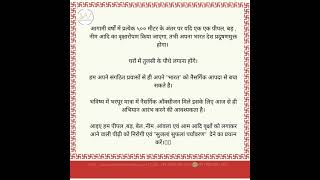 आगामी वर्षों में प्रत्येक ५०० मीटर के अंतर पर यदि एक एक पीपल, बड़ ,
नीम आदि का वृक्षारोपण किया जाएगा, तभी अपना भारत देश प्रदूषणमुक्त
होगा।
घरों में तुलसी के पौधे लगाना होंगे।
हम अपने संगठित प्रयासों से ही अपने "भारत" को नैसर्गिक आपदा से बचा
सकते है।
भविष्य में भरपूर मात्रा में नैसर्गिक ऑक्सीजन मिले इसके लिए आज से ही
अभियान आरंभ करने की आवश्यकता है।
आइए हम पीपल ,बड़, बेल ,नीम ,आंवला एवं आम आदि वृक्षों को लगाकर
आने वाली पीढ़ी को निरोगी एवं "सुजलां सुफलां पर्यावरण" देने का प्रयत्न
करें।